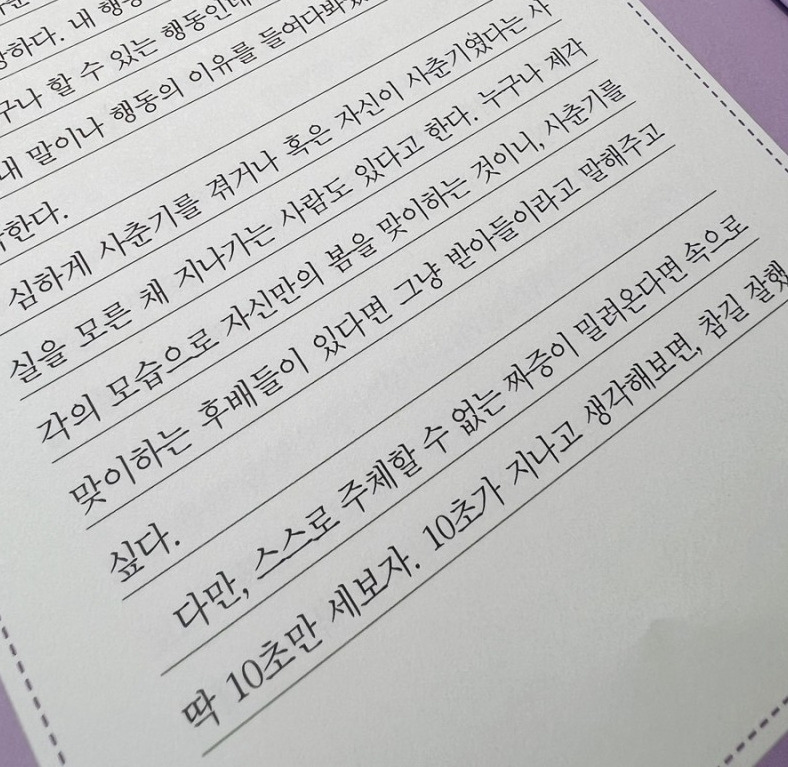 하다. 내 행동
구나 할 수 있는 행동인데
내 말이나 행동의 이유를 들여다봐
한다.
심하게 사춘기를 겪거나 혹은 자신이 사춘기였다는 사
실을 모른 채 지나가는 사람도 있다고 한다. 누구나 제각
각의 모습으로 자신만의 봄을 맞이하는 것이니, 사춘기를
맞이하는 후배들이 있다면 그냥 받아들이라고 말해주고
싶다.
다만, 스스로 주체할 수 없는 짜증이 밀려온다면 속으로
딱 10초만 세보자. 10초가 지나고 생각해보면, 참길 잘했